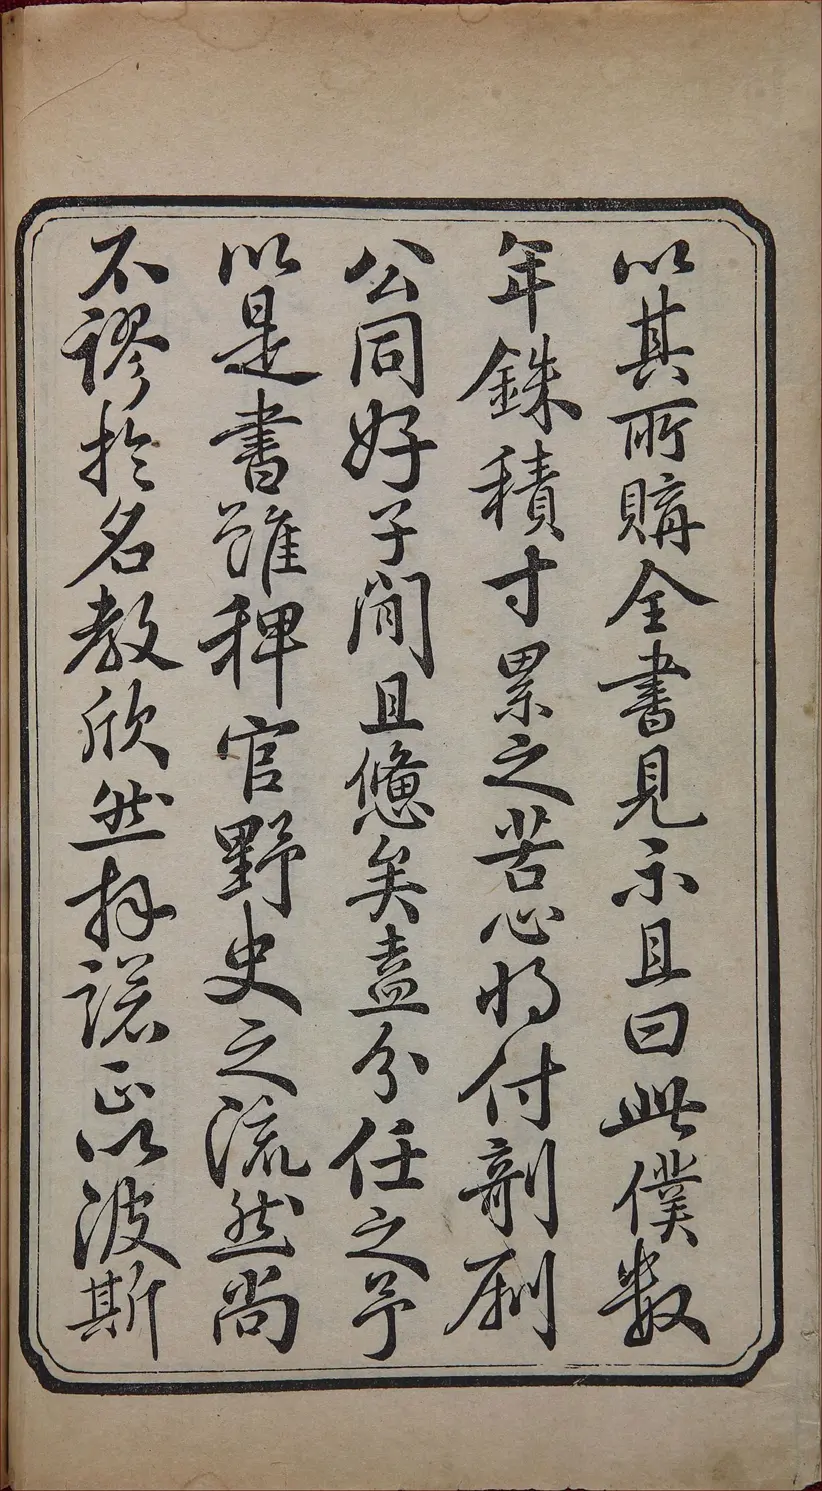 以其所購全書見示且曰此僕數
年銖積寸累之苦心將付剞劂
公同好子閒且憊矣盍分任之予
以是書雖稗官野史之流然尚
不謬於名教欣然拜諾正以波斯